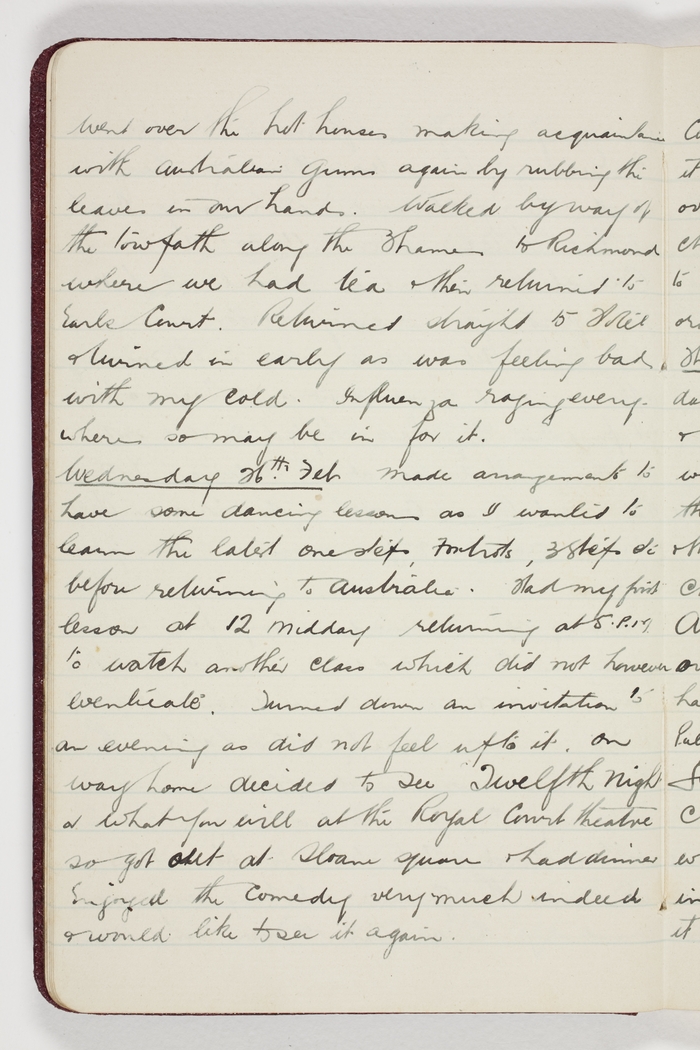 went over the hot houses making acquaintance
with Australian Gums again by rubbing the
leaves in our hands. Walked by way of
the Towpath along the Thames to Richmond
where we had tea & then returned to
Earls Court. Returned straight to Hotel
& turned in early as was feeling bad
with my cold. Influenza raging every-
where so may be in for it.
Wednesday 26th. Feb made arrangements to
have some dancing lessons as I wanted to
learn the latest one steps, Foxtrots, 3 Steps etc
before returning to Australia. Had my first
lesson at 12 Midday returning at 5.P.M.
to watch another class which did not however
eventuate. Turned down an invitation to
an evening as did not feel up to it. On
way home decided to see Twelfth Night
or What you will at the Royal Court theatre
so got out at Sloane square & had dinner
Enjoyed the Comedy very much indeed
& would like to see it again.